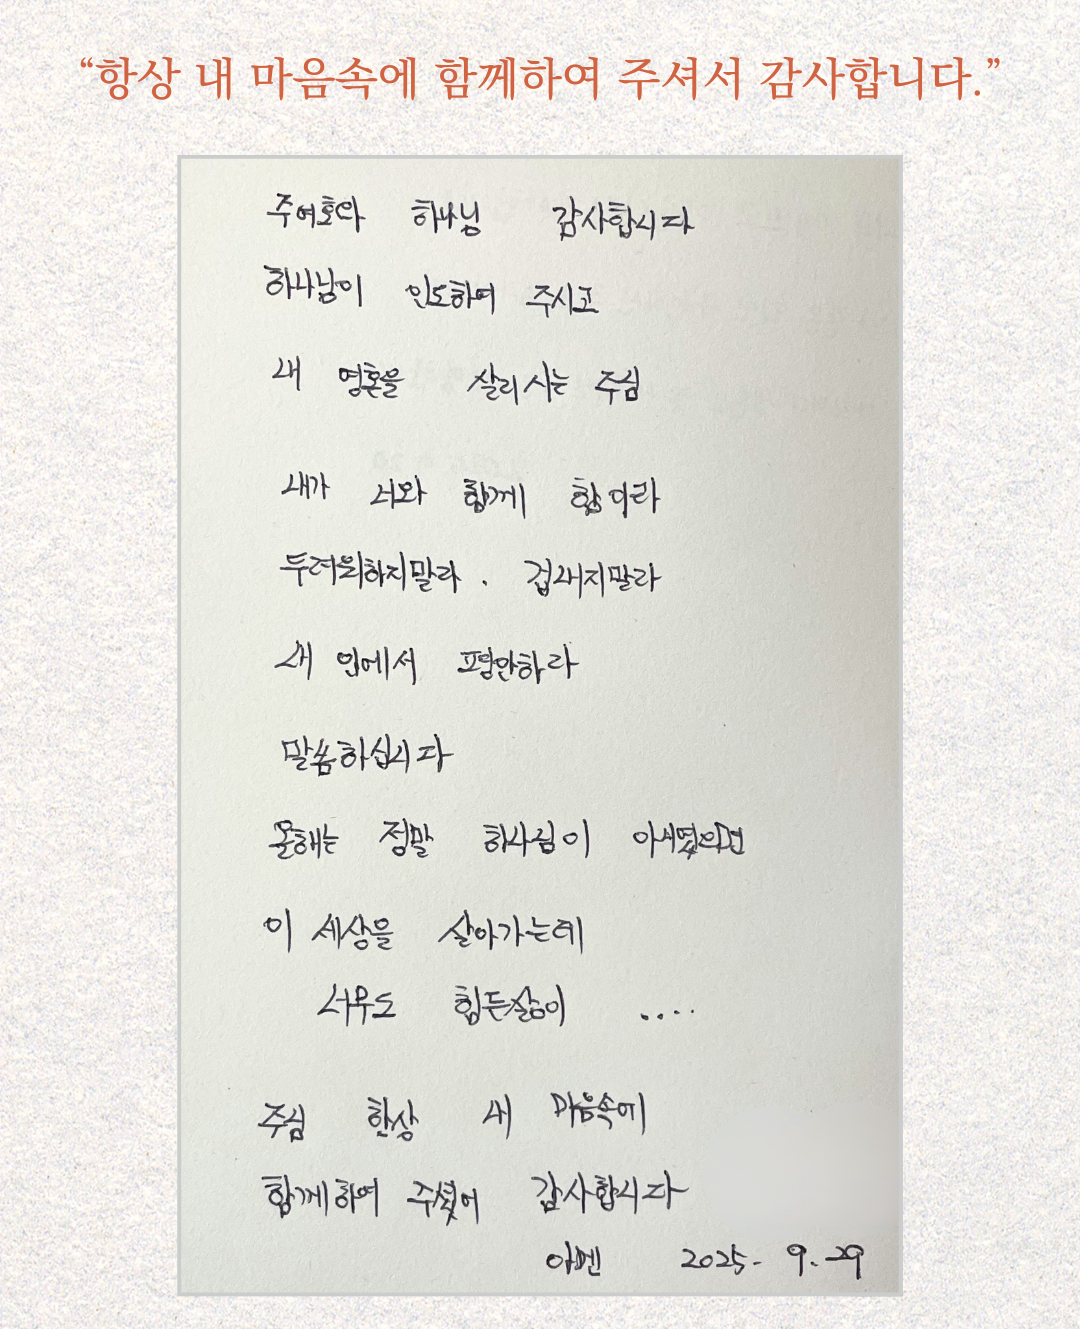 “항상 내 마음속에 함께하여 주셔서 감사합니다.”
주여호와 하나님 감사합니다
하나님이 인도하여 주시고
내 영혼을 살리시는 주님
내가 너와 함께 함이라
두려워하지말라. 겁내지말라
내 안에서 평안하라
말씀하십니다
올해는 정말 하나님이 아니였으면
이 세상을 살아가는데
너무도 힘든삶이 ....
주님 한상 내 마음속에
함께하여 주셧어 감사합니다
아멘 2025- 9. 29